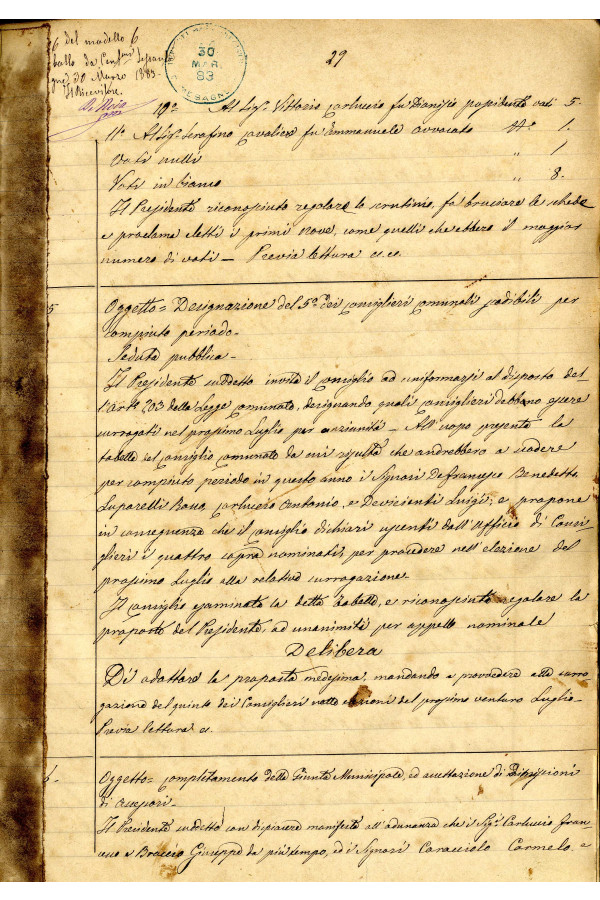 6 del modello 6
30 Marzo 1883
Il
30
MAR.
83
MESAGNE
29
10º Al Sigr Vittorio Carluccio fu Dionisio possidente voti 5.
11º Al Sigr Serafino Cavaliere fu Emmanuele avvocato Nº 1.
Voti nulli " 1
Voti in bianco " 8.
Il Presidente riconosciuto regolare lo scrutinio, fa bruciare le schede
e proclama eletti i primi nove, come quelli che ebbero il maggior
numero di voti — Previa lettura ec. ec.
5
Oggetto = Designazione del 5º dei Consiglieri Comunali scadibili per
compiuto periodo.
Seduta pubblica —
Il Presidente suddetto invita il Consiglio ad uniformarsi al disposto del-
l'arto 203 della Legge Comunale, designando, quali Consiglieri debbano essere
surrogati nel prossimo Luglio per anzianità — All'uopo presenta la
tabella del Consiglio Comunale da cui risulta che andrebbero a scadere
per compiuto periodo in questo anno i Signori Defrancesco Benedetto,
Luparelli Carluccio Antonio, e Devicienti Luigi; e propone
in conseguenza che il Consiglio dichiari uscenti dall'Ufficio di Consi-
glieri i quattro sopra nominati, per procedere nell'elezione del
prossimo Luglio alla relativa surrogazione.
Il Consiglio esaminata la detta tabella, e riconosciuta regolare la
proposta del Presidente, ad unanimità per appello nominale
Delibera
Di adottare la proposta medesima, mandando a provvedere alla surro-
gazione del quinto dei Consiglieri nelle elezioni del prossimo venturo Luglio —
Previa lettura ec.
6.
Oggetto = Completamento della Giunta Municipale, ed accettazione di dimissioni
di Assessori —
Il Presidente suddetto con dispiacere manifesta all'adunanza che il Sigr Carluccio Fran-
cesco e Braccio Giuseppe da più tempo, ed i Signori Caracciolo Carmelo e